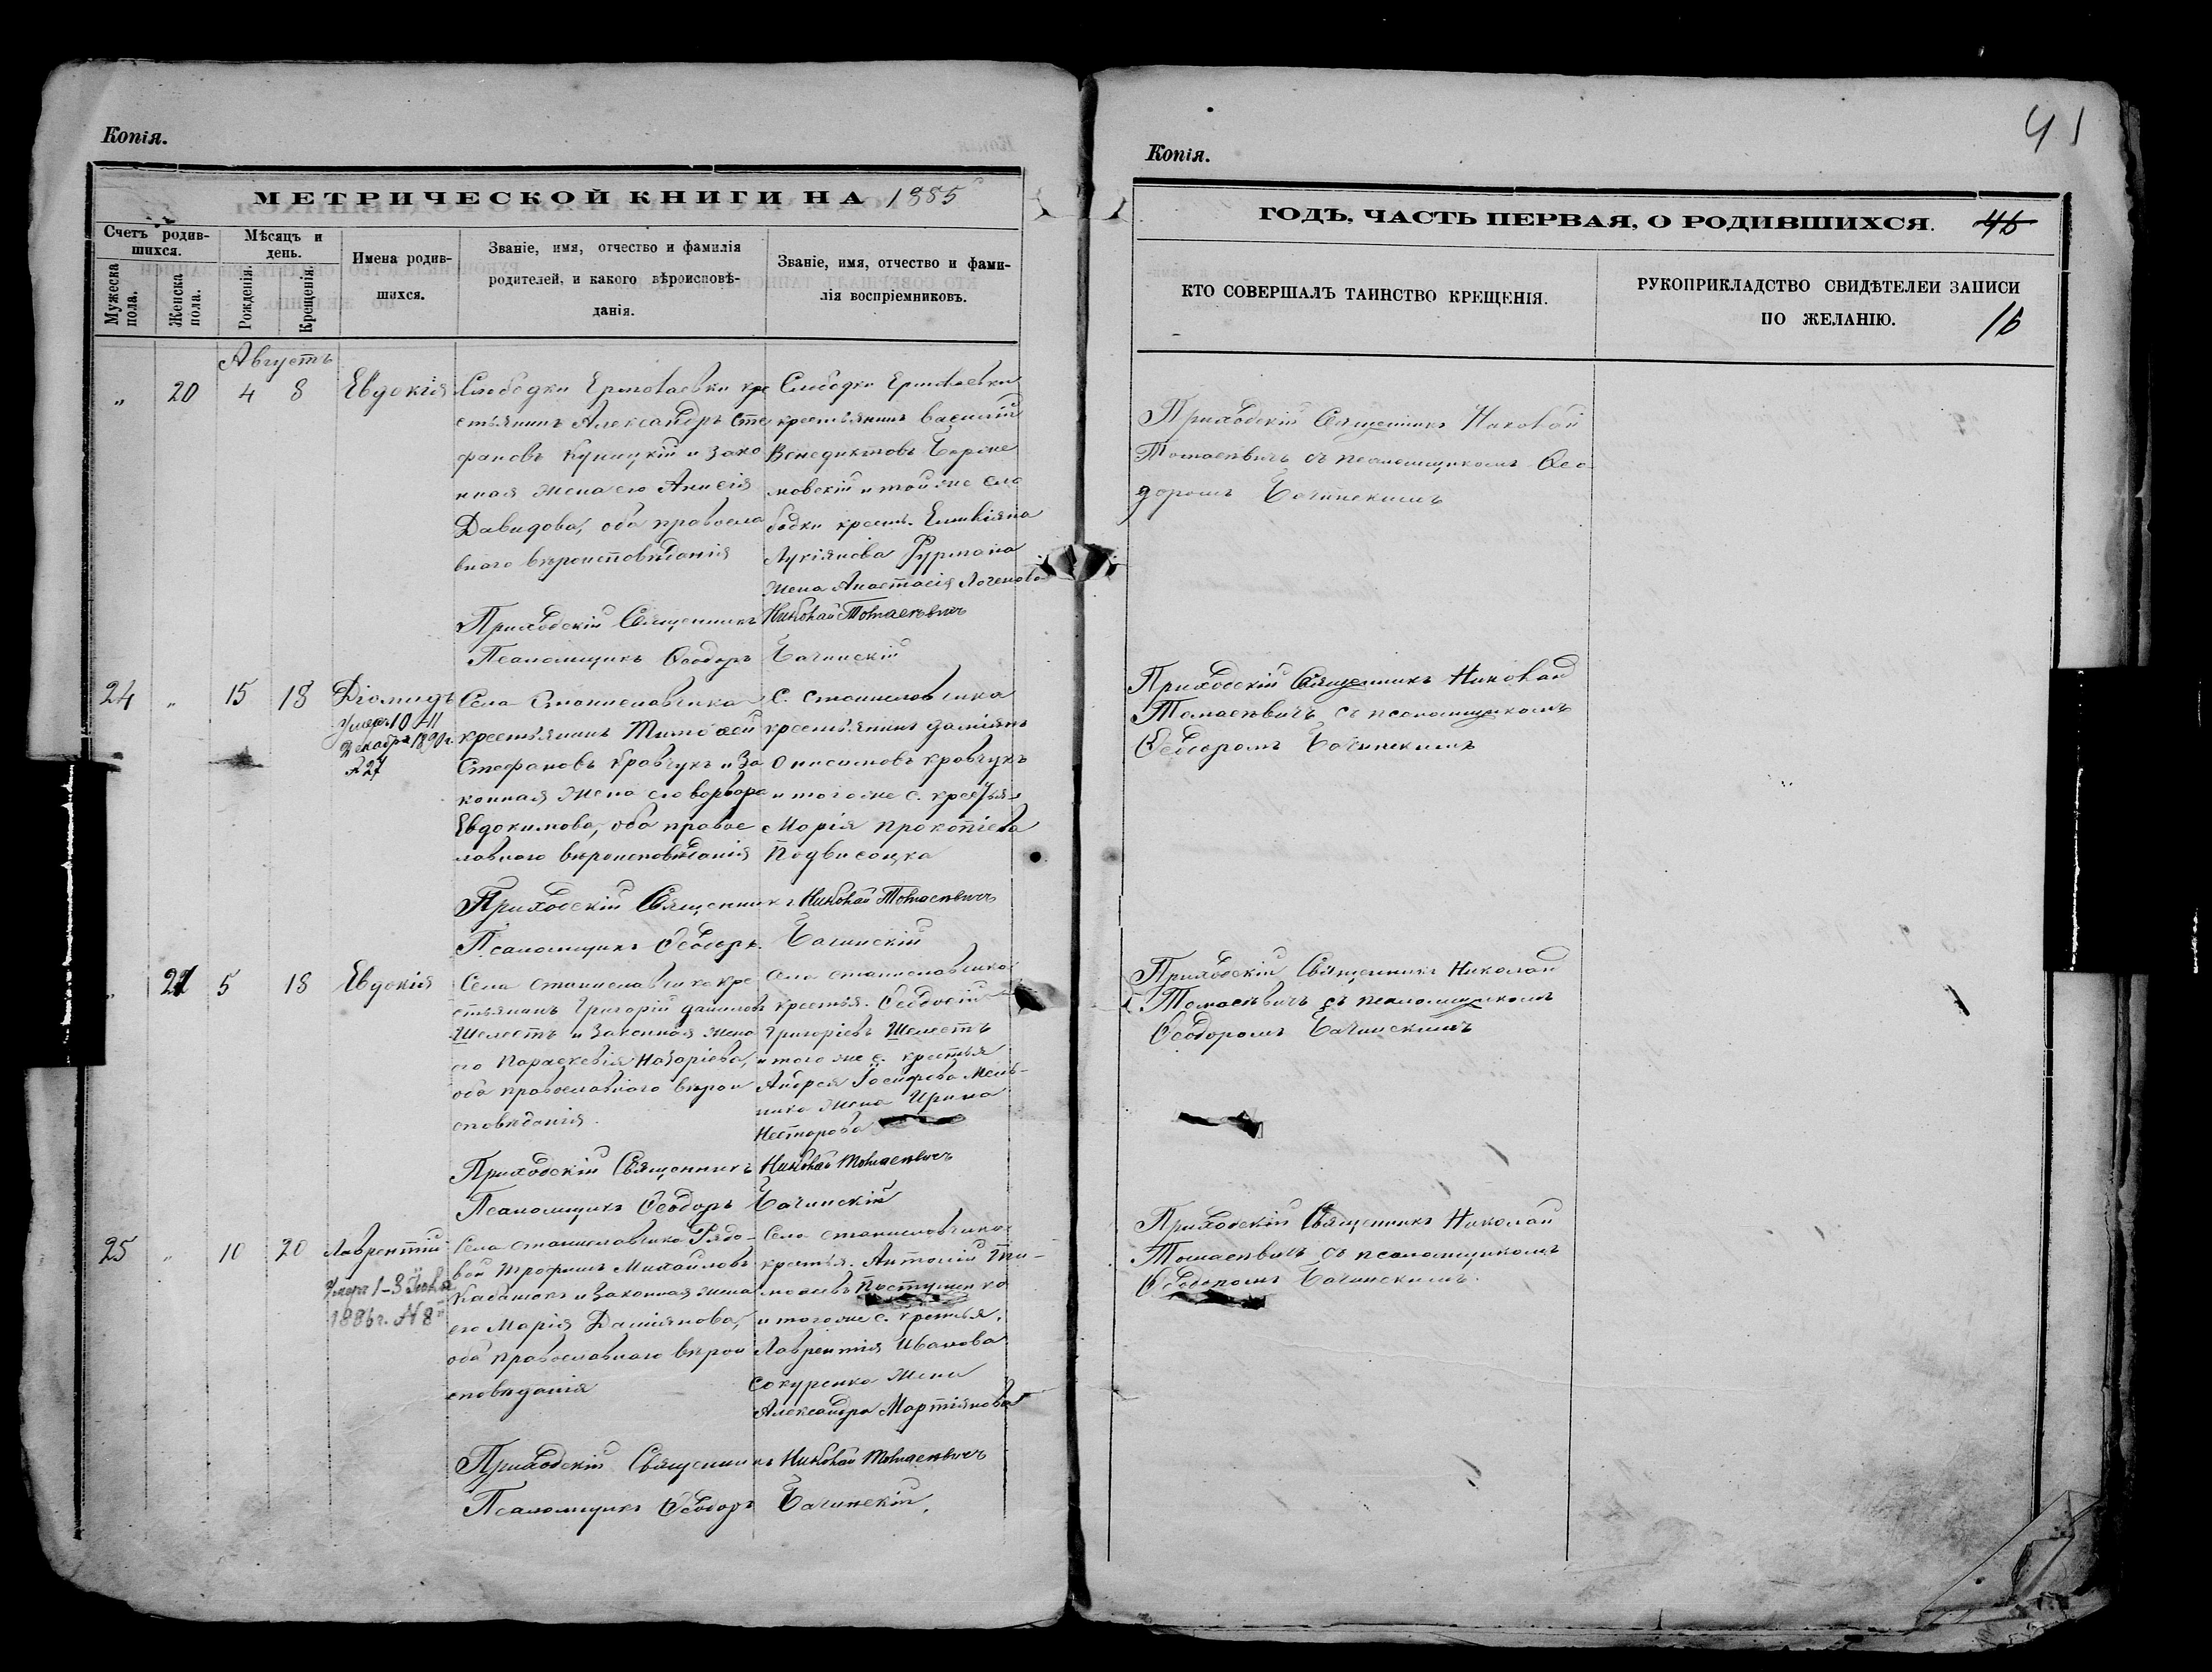 Копія.
МЕТРИЧЕСКОЙ КНИГИ НА 1885
Счетъ родив-
шихся.
Мужеска
пола.
Женска
пола.
Мѣсяцъ и
день.
Рожденія.
Крещенія.
Имена родив-
шихся.
Званіе, имя, отчество и фамилія
родителей, и какого вѣроисповѣ-
данія.
Званіе, имя, отчество и фами-
лія воспріемниковъ.
Августъ
„ 20 4 8 Евдокія
Слободки Ермолаевки кре
стьянинъ Александръ Сте
фановъ Куницкій и зако
нная жена его Анисія
Давидова, оба правосла
внаго вѣроисповѣданія
Слободки Ермолаевки
крестьянинъ Василій
Венедиктовъ
и той же сло
бодки крест.
Лукіянова Фурмана
жена Анастасія
Приходскій Священникъ Николай Томасевичъ
Псаломщикъ Ѳеодоръ Бачинскій
24 „ 15 18 Діомидъ
Умеръ 10-11
Декабря 1890 г.
№ 27
Села Станиславчика
крестьянинъ Тимоѳей
Стефановъ Кравчукъ и за
конная жена его Варвара
Евдокимова, оба правос
лавнаго вѣроисповѣданія
С. Станиславчика
крестьянинъ Даміянъ
Онисимовъ Кравчукъ
и того же с. крестья.
Марія Прокопіева
Подвисоцка
Приходскій Священникъ Николай Томасевичъ
Псаломщикъ Ѳеодоръ Бачинскій
„ 21 5 18 Евдокія
Села Станиславчика кре
стьянинъ Григорій Даниловъ
Шелестъ и законная жена
его Параскевія Назаріева,
оба православнаго вѣрои
сповѣданія.
Села Станиславчика
крестья. Ѳеодосій
Григоріевъ Шелестъ
и того же с. крестья
Андрея Іосифова Мель-
ника жена Ирина
Несторова
Приходскій Священникъ Николай Томасевичъ
Псаломщикъ Ѳеодоръ Бачинскій
25 „ 10 20 Лаврентій
Умеръ 1-3 Іюля
1886 г. № 8
Села Станиславчика Рядо-
вой Трофимъ Михайловъ
и законная жена
его Марія Даміянова,
оба православнаго вѣрои
сповѣданія
Села Станиславчика
крестья. Антоній Ти-
моѳеевъ
и того же с. крестья.
Лаврентія Иванова
Сокуренка жена
Александра Мартіянова
Приходскій Священникъ Николай Томасевичъ
Псаломщикъ Ѳеодоръ Бачинскій.
Копія.
41
ГОДЪ, ЧАСТЬ ПЕРВАЯ, О РОДИВШИХСЯ.
46
КТО СОВЕРШАЛЪ ТАИНСТВО КРЕЩЕНІЯ.
РУКОПРИКЛАДСТВО СВИДѢТЕЛЕИ ЗАПИСИ
ПО ЖЕЛАНІЮ.
16
Приходскій Священникъ Николай
Томасевичъ съ псаломщикомъ Ѳео
доромъ Бачинскимъ
Приходскій Священникъ Николай
Томасевичъ съ псаломщикомъ
Ѳеодоромъ Бачинскимъ
Приходскій Священникъ Николай
Томасевичъ съ псаломщикомъ
Ѳеодоромъ Бачинскимъ
Приходскій Священникъ Николай
Томасевичъ съ псаломщикомъ
Ѳеодоромъ Бачинскимъ.